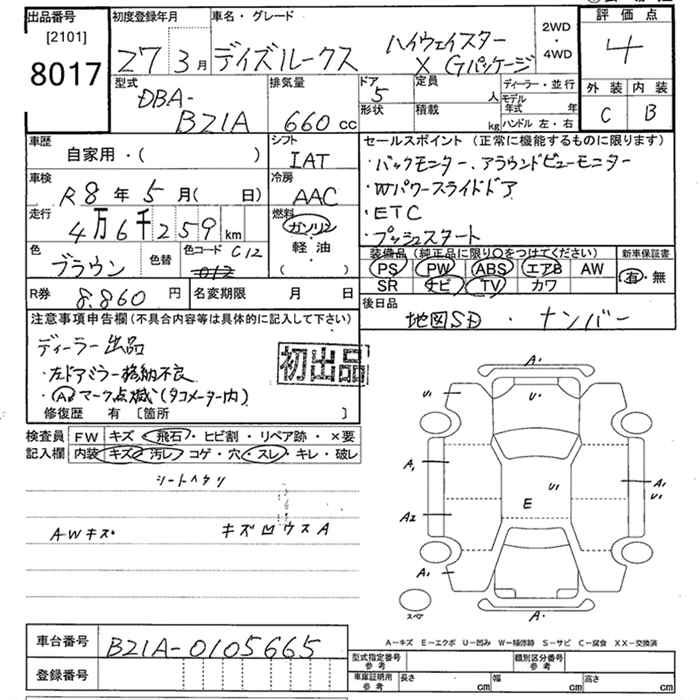 出品番号
[2101]
8017
初度登録年月
27 3月
車名・グレード
デイズルークス ハイウェイスター
X Gパッケージ
2WD
・
4WD
評価点
4
外装 内装
C B
型式
DBA-
B21A
排気量
660 cc
ドア
5
形状
定員
人
積載
kg
ディーラー・並行
モデル年式 年
ハンドル 左・右
車歴
自家用・( )
シフト
IAT
車検
R8年5月( 日)
冷房
AAC
走行
4万6千259km
燃料
ガソリン
軽油
・( )
色
ブラウン
色替
色コード C12
R券 8.860円
名変期限 月 日
セールスポイント (正常に機能するものに限ります)
・バックモニター、アラウンドビューモニター
・Wパワースライドドア
・ETC
・プッシュスタート
装備品 (純正品に限り○をつけてください)
PS PW ABS エアB AW
SR ナビ TV カワ
新車保証書
有・無
後日品
地図SD ・ ナンバー
注意事項申告欄(不具合内容等は具体的に記入して下さい)
ディーラー出品
・左ドアミラー格納不良
・Aマーク点滅(タコメーター内)
初出品
修復歴 有 [箇所 ]
検査員 FW キズ・飛石・ヒビ割・リペア跡・×要
記入欄 内装 キズ・汚レ・コゲ・穴・スレ・キレ・破レ
シートヘタリ
AWキズ キズ凹ウスA
A・
U1 U・
A1 U1 A1
U1
A2 E
A1
スペア
A・
A-キズ E-エクボ U-凹み W-補修跡 S-サビ C-腐食 XX-交換済
車台番号 B21A-0105665
登録番号
型式指定番号 参考
類別区分番号 参考
車庫証明用 参考 長さ cm 幅 cm 高さ cm